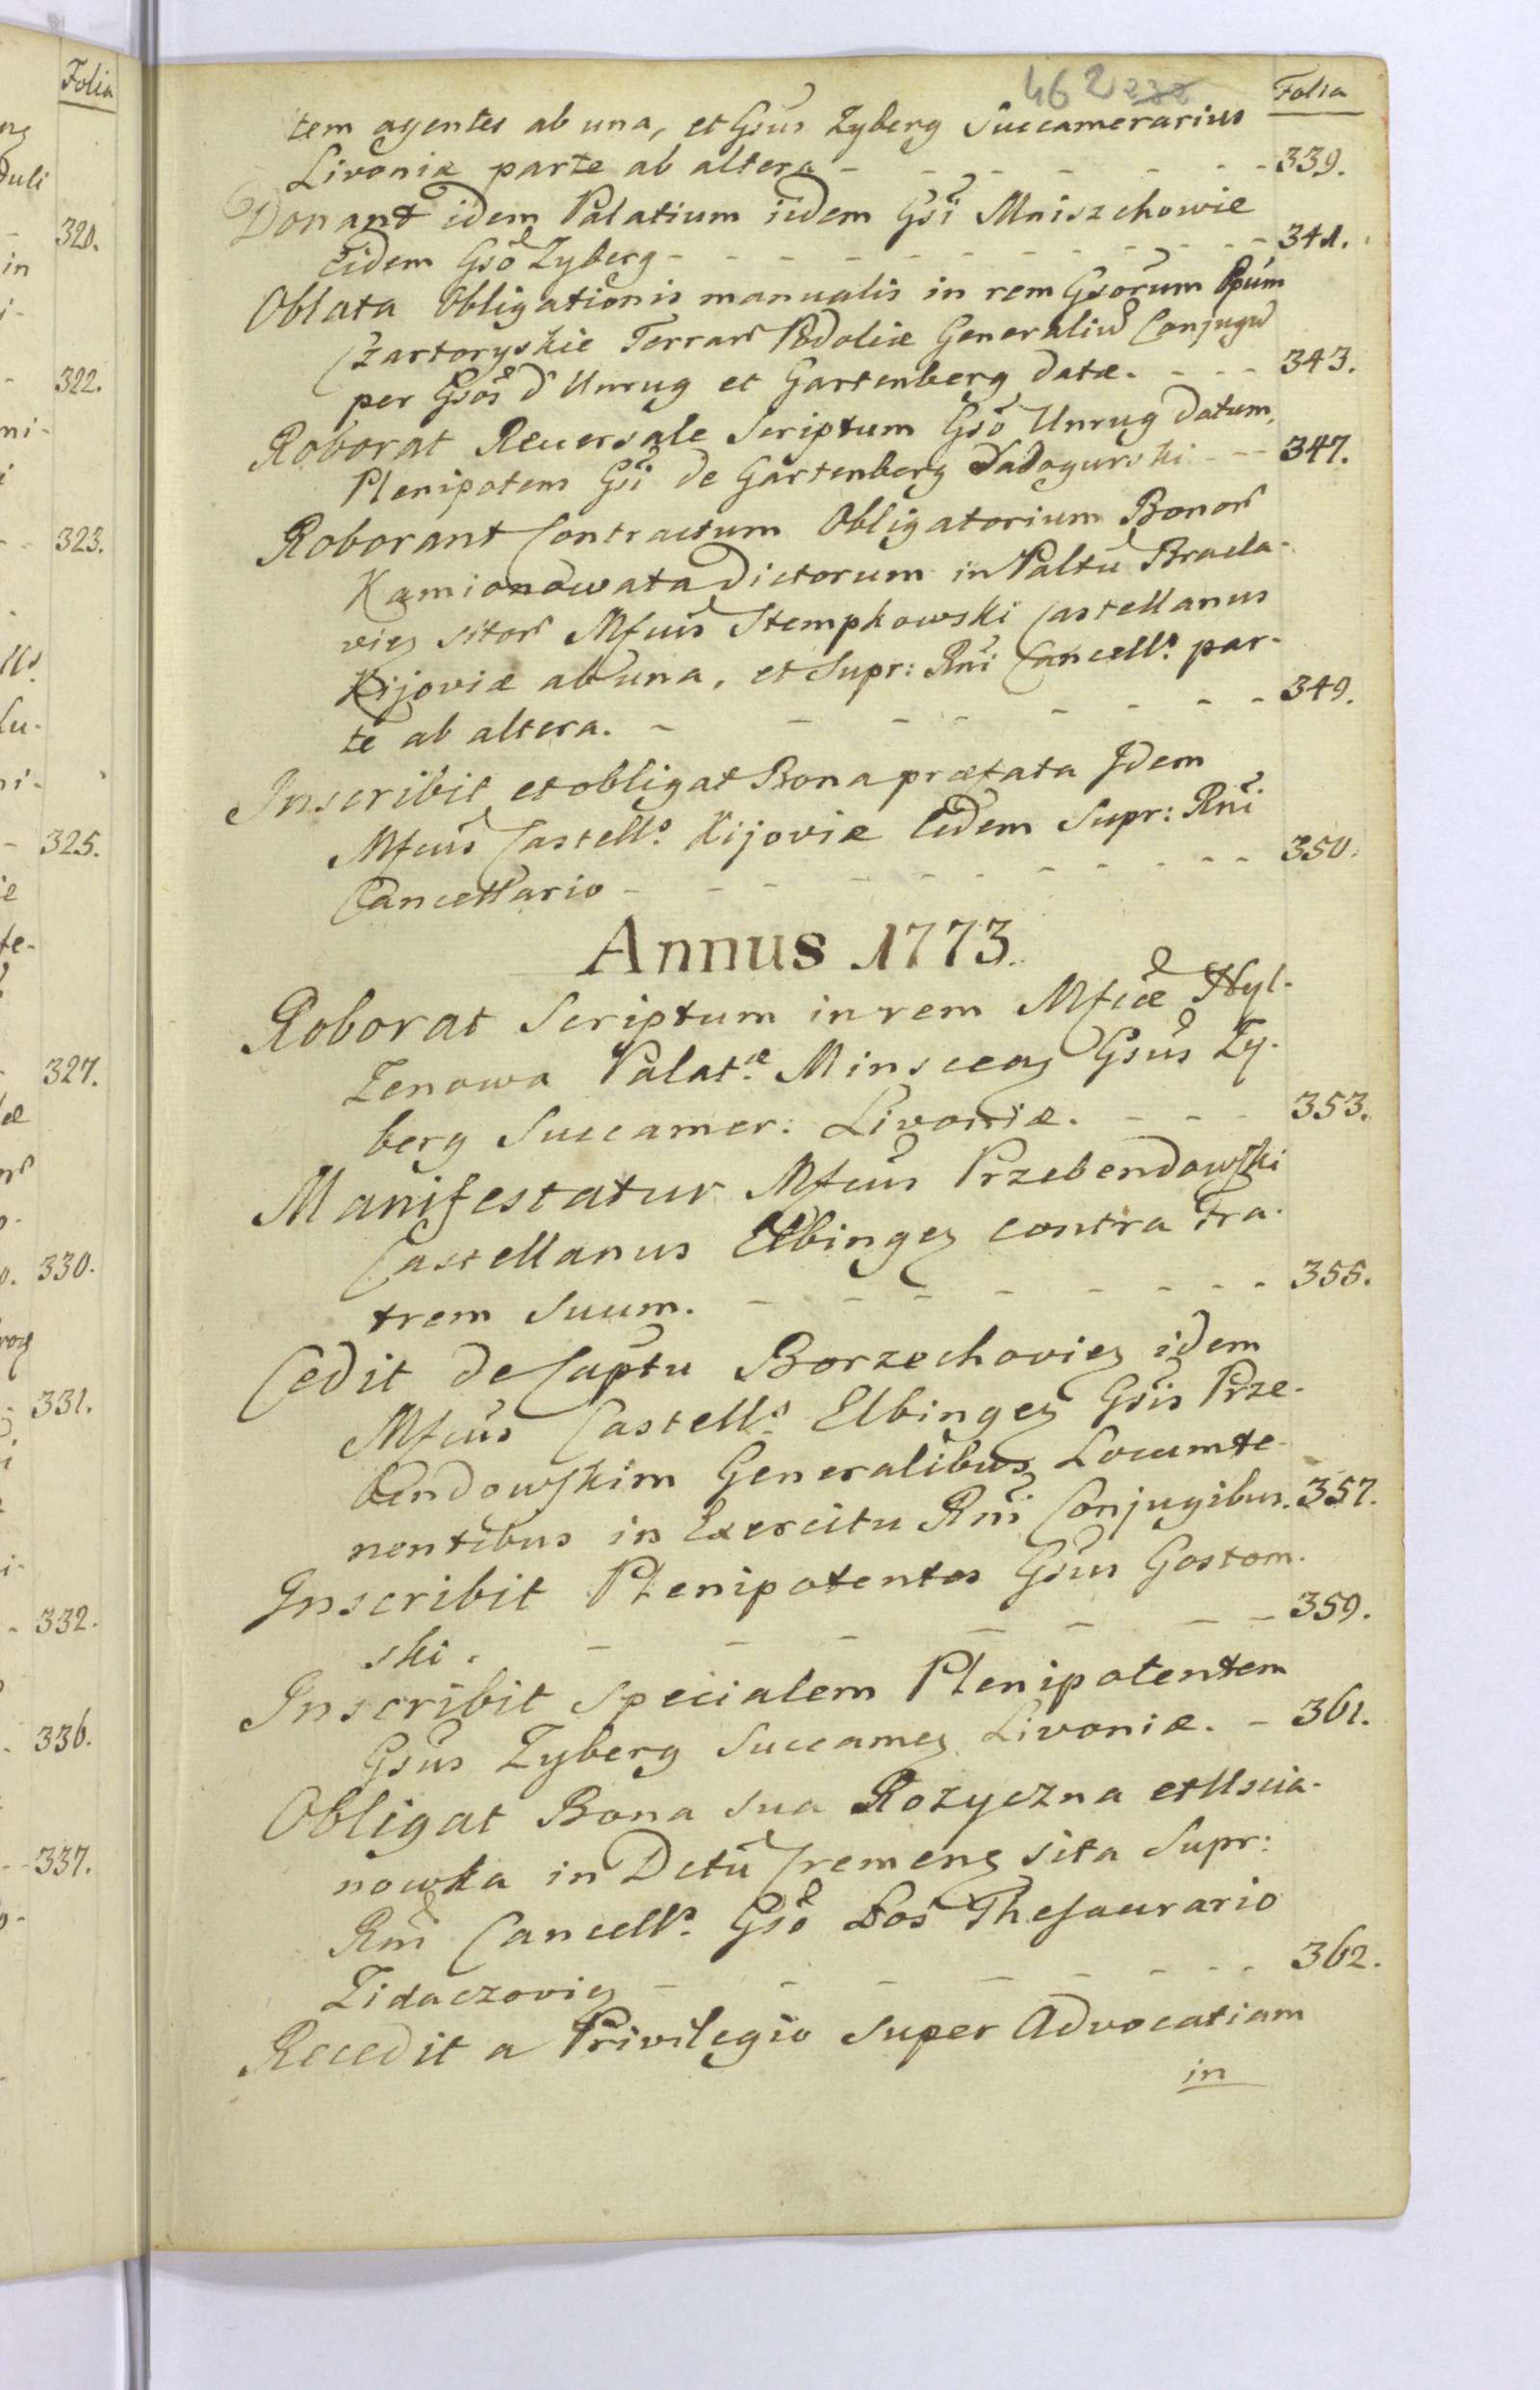 Folia
320.
322.
323.
325.
327.
330.
331.
332.
336.
337.
462
Folia
tem agentes ab una, et Gsus Zyberg Succamerarius
Livoniæ parte ab altera - - - - - - 339.
Donant idem Palatium iidem Gsi Mniszchowie
eidem Gso Zyberg - - - - - - - - 341.
Oblata Obligationis manualis in rem Gsorum Ppum
Czartoryskie Terrar Podoliæ Generaliu Conjugu
per Gsos d'Unrug et Gartenberg datæ. - - - 343.
Roborat Reversale Scriptum Gso Unrug datum,
Plenipotens Gsi de Gartenberg Sadogurski - - - 347.
Roborant Contractum Obligatorium Bonor
Kamionowata dictorum in Paltu Bracla-
vien sitor Mfcus Stempkowski Castellanus
Kijoviæ ab una, et Supr: Rni Cancells. par-
te ab altera. - - - - - - - - 349.
Inscribit et obligat Bona præfata Idem
Mfcus Castells. Kijoviæ Eidem Supr: Rni
Cancellario - - - - - - - - - 350.
Annus 1773.
Roborat Scriptum in rem Mfcæ Hyl-
zenowa Palat.æ Minscen Gsus Zy-
berg Succamer: Livoniæ. - - - 353.
Manifestatur Mfcus Przebendowski
Castellanus Elbingen contra Fra-
trem suum. - - - - - - - - 355.
Cedit de Captu Borzechovien idem
Mfcus Castells. Elbingen Gsis Prze-
bendowskim Generalibus Locumte-
nentibus in Exercitu Rni Conjugibus. 357.
Inscribit Plenipotentes Gsus Gostom-
ski. - - - - - - - 359.
Inscribit specialem Plenipotentem
Gsus Zyberg Succamen Livoniæ. - 361.
Obligat Bona sua Rozyczna et Uscia-
nowka in Dctu Cremenen sita Supr:
Rni Cancells. Gso Łos Thesaurario
Zidaczovien - - - - - - - - 362.
Recedit a Privilegio super Advocatiam
in